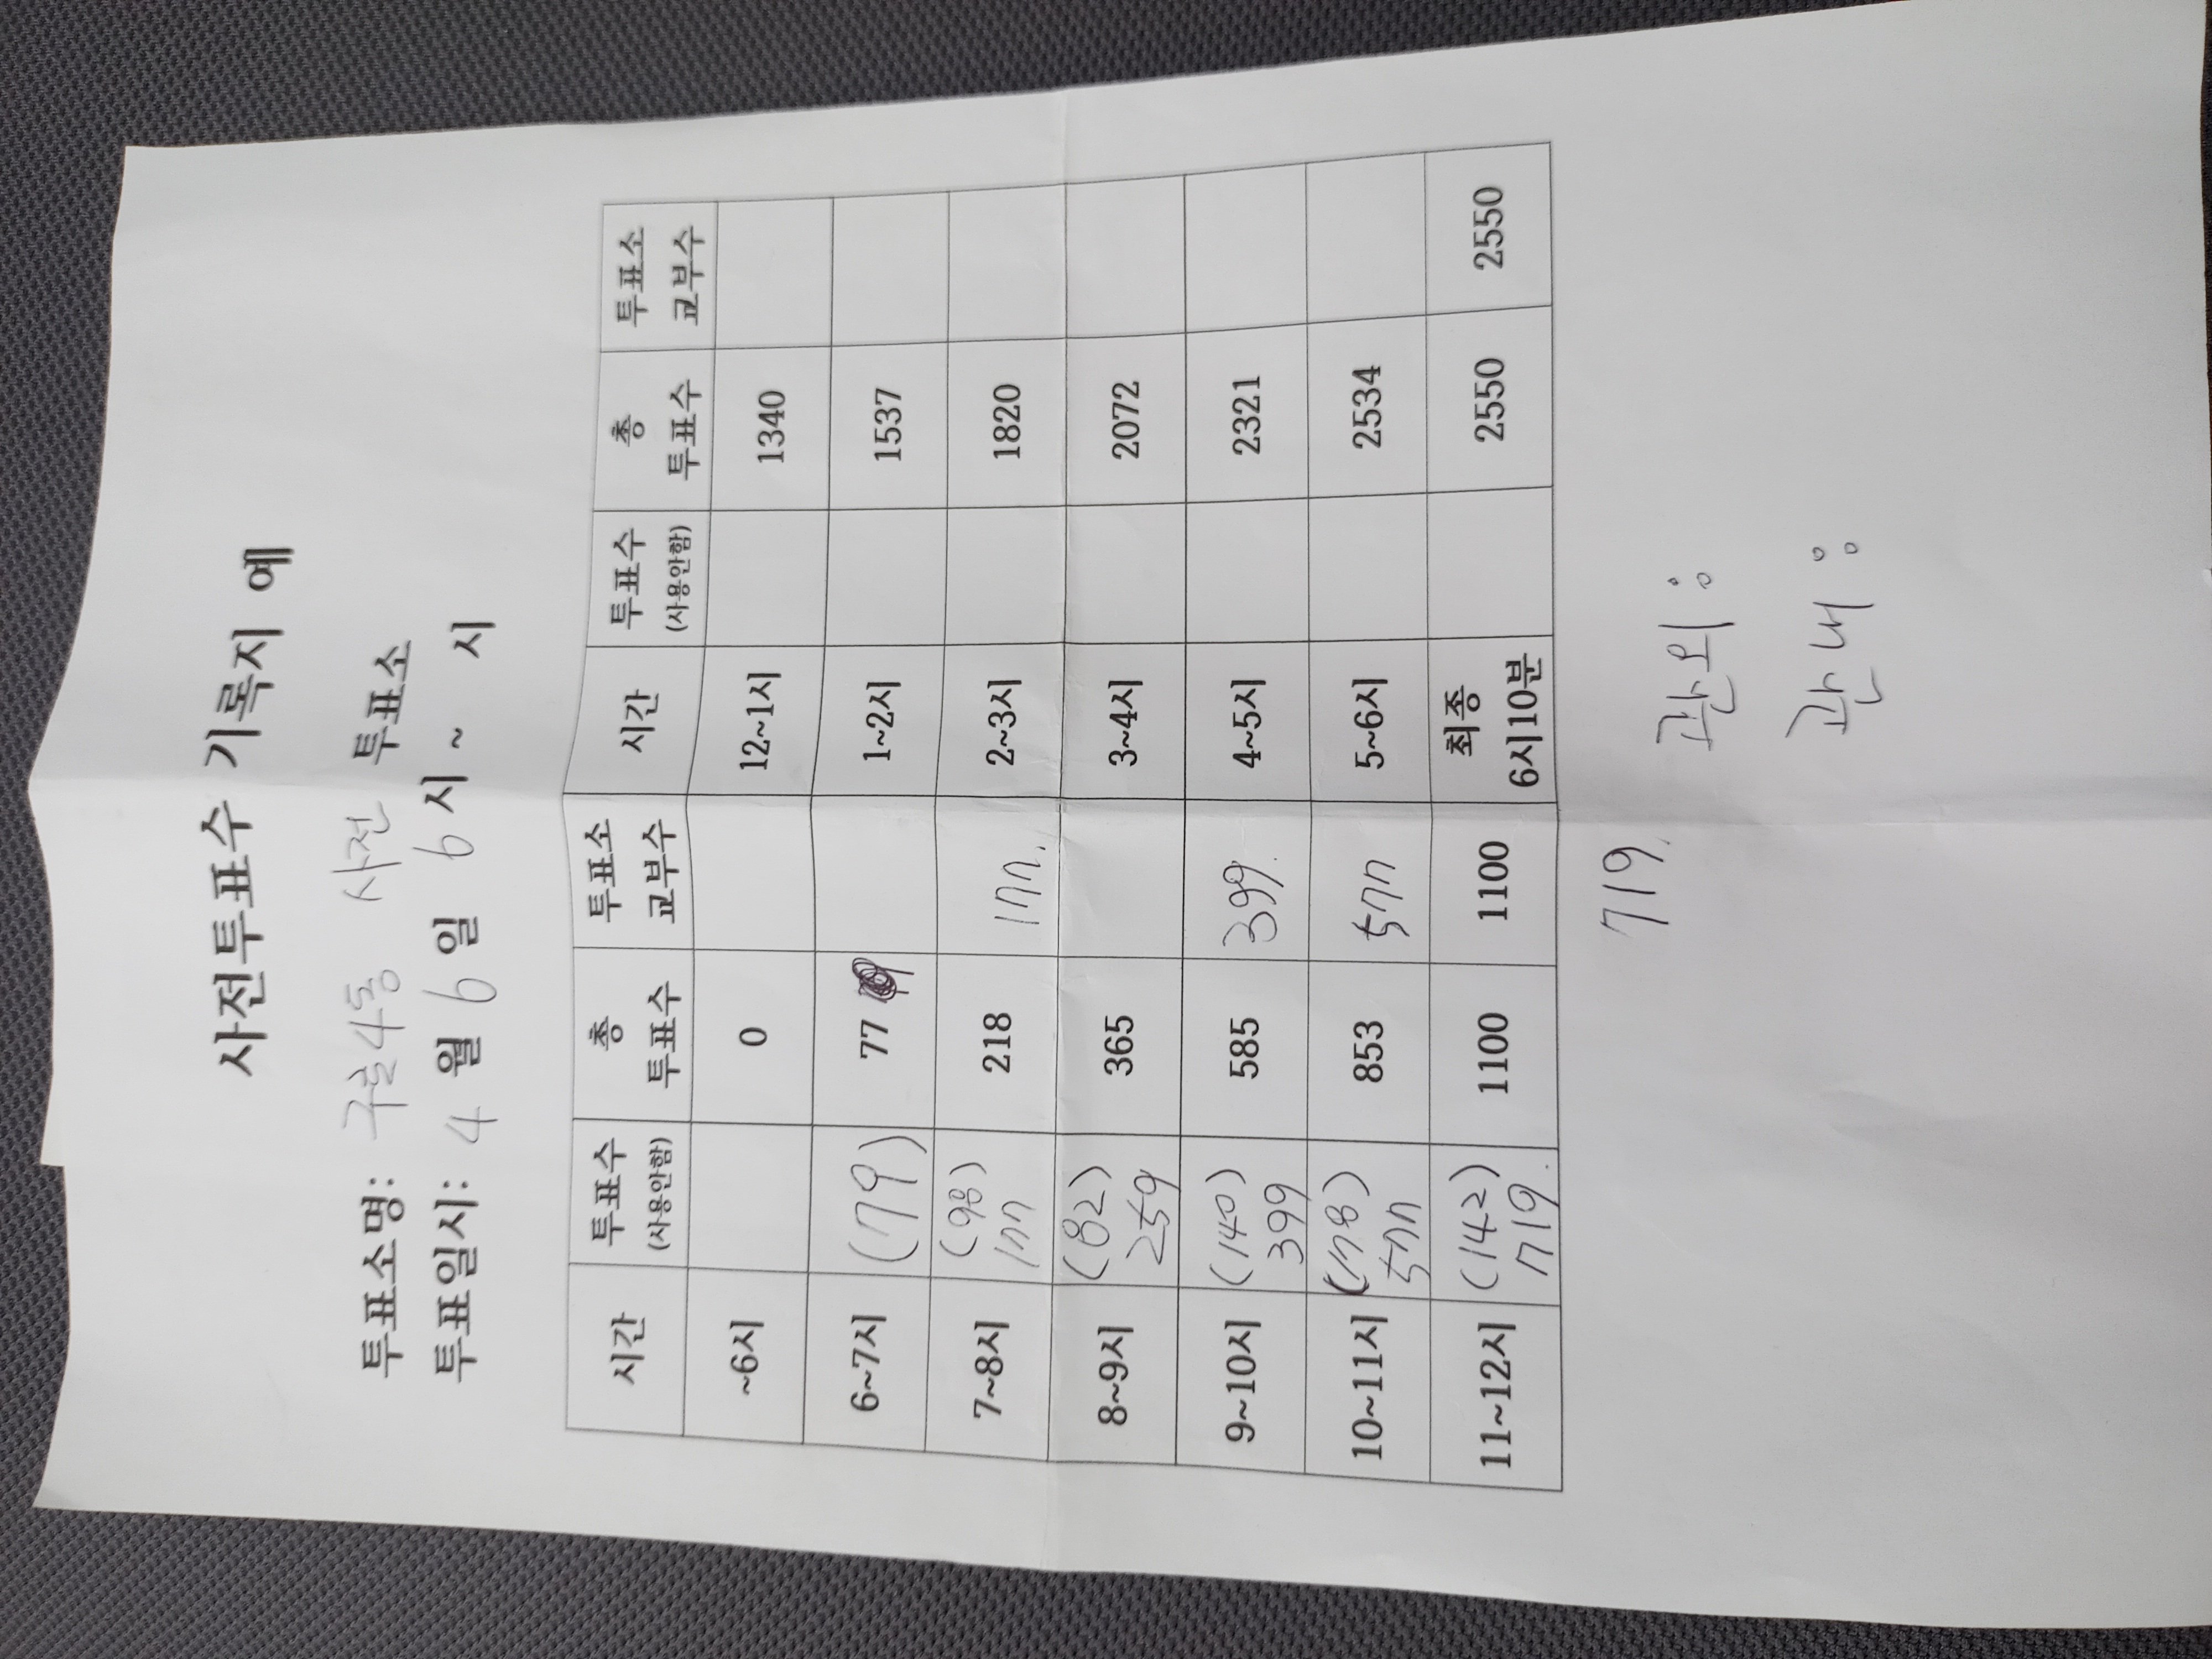 사전투표수 기록지 예
투표소명: 구로4동 사전 투표소
투표일시: 4 월 6 일 6 시 ~ 시
시간 투표수 (사용안함) 총 투표수 투표소 교부수 시간 투표수 (사용안함) 총 투표수 투표소 교부수
~6시 0 12~1시 1340
6~7시 (79) 77 1~2시 1537
7~8시 (98) 177 218 177. 2~3시 1820
8~9시 (82) 259 365 3~4시 2072
9~10시 (140) 399 585 399. 4~5시 2321
10~11시 (178) 577 853 577 5~6시 2534
11~12시 (142) 719. 1100 1100 최종 6시10분 2550 2550
719.
관외 :
관내 :